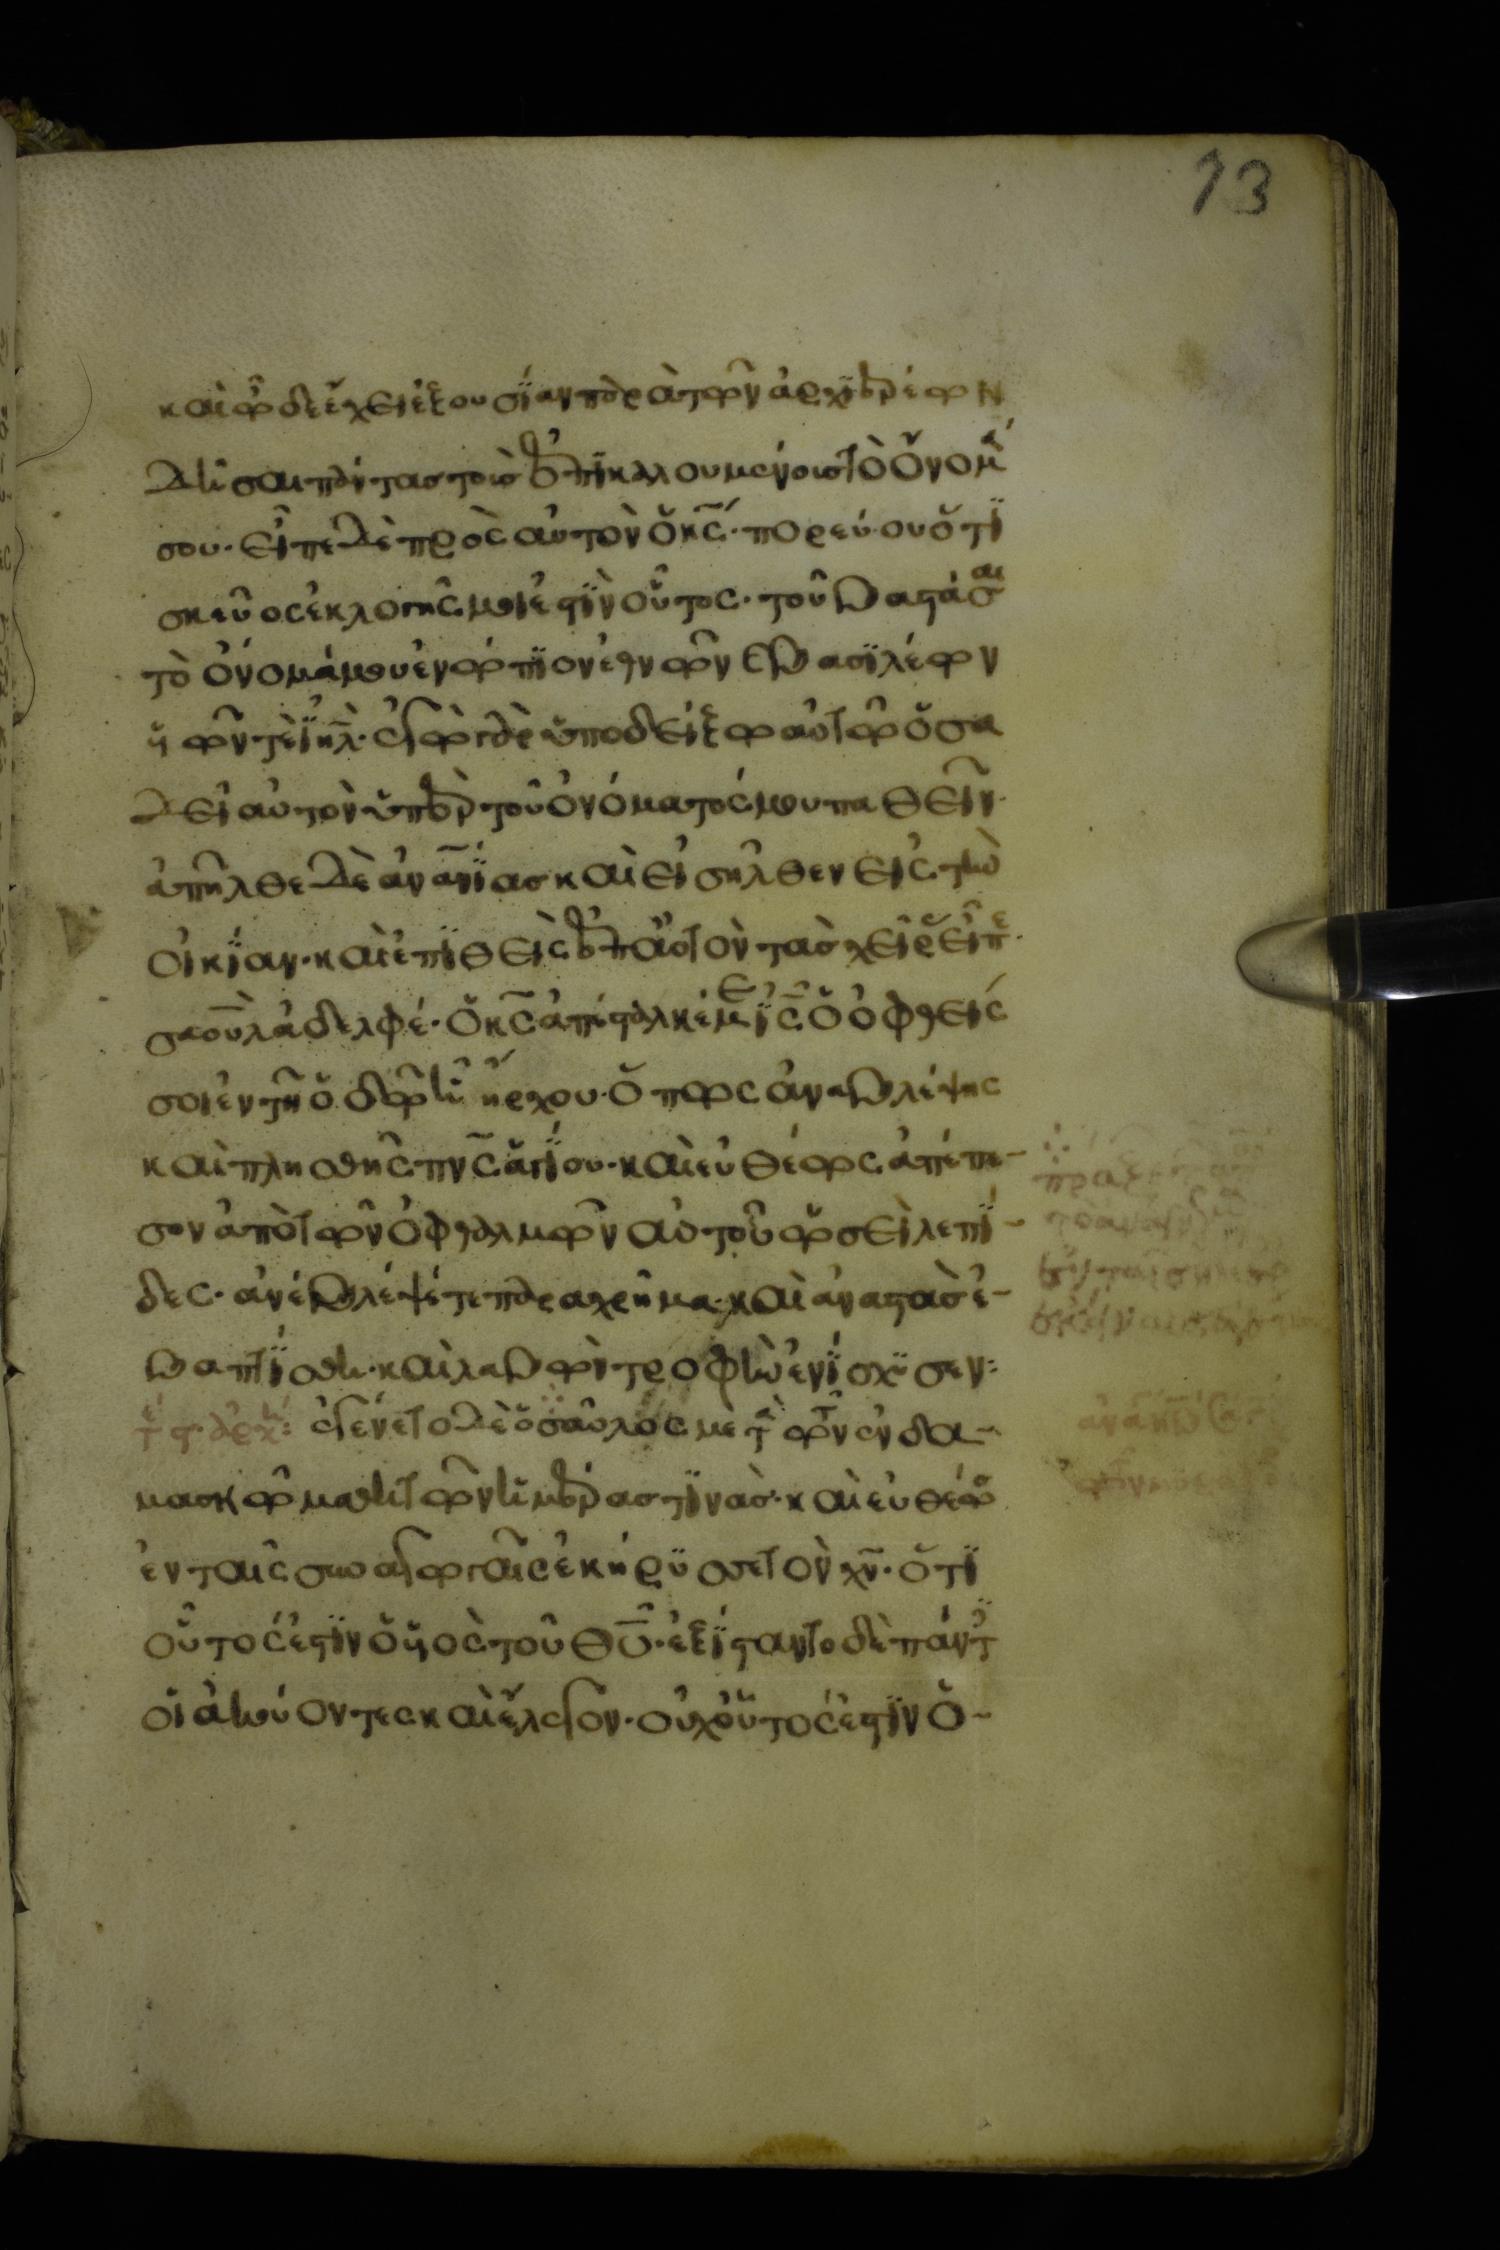 73
καὶ ὧδε ἔχει ἐξουσίαν παρὰ τῶν ἀρχιερέων
δῆσαι πάντας τοὺσ ἐπϊκαλουμένουσ τὸ ὄνομά
σου· εἶπε δὲ πρὸς αὐτὸν ὁ κς̄· πορεύου ὅτϊ
σκεῦος ἐκλογῆς μοι ἐστῒν οὗτος· τοῦ βαστάσαι
τὸ ὄνομά μου ἐνώπϊον ἐθνῶν κ βασϊλέων
ὑϊῶν τὲ ϊηλ̄· ἐγὼ γὰρ ὑποδείξω αὐτῶ ὅσα
δεῖ αὐτὸν ὑπὲρ τοῦ ὀνόματός μου παθεῖν·
ἀπῆλθε δὲ ἀνανΐασ καὶ εἰσῆλθεν εἰς τὴν
οἰκΐαν· καὶ ἐπϊθεὶς ἐπ αὐτὸν τὰσ χεῖρ εἶπε·
σαοὺλ ἀδελφέ· ὁ κς̄ ἀπέσταλκέ με ϊς̄ ὁ ὀφθείς
σοι ἐν τῆ ὁδῶ ἧ ἤρχου· ὅπως ἀναβλέψης
καὶ πλησθῆς πνς̄ ἁγΐου· καὶ εὐθέως ἀπέπε-
σον ἀπὸ τῶν ὀφθαλμῶν αὐτοῦ ὡσεὶ λεπΐ-
δες· ἀνέβλεψέ τε παραχρῆμα· καὶ ἀναστὰσ ἐ-
βαπτΐσθη· καὶ λαβὼν τροφὴν ἐνΐσχϋσεν:
τε στ ἀρχ: ἐγένετο δὲ ὁ σαῦλος μετὰ τῶν ἐν δα-
μασκῶ μαθητῶν ἡμέρασ τϊνάσ· καὶ εὐθέως
ἐν ταῖς συναγωγαῖς ἐκήρϋσσε τὸν χν̄· ὅτϊ
οὗτός ἐστϊν ὁ ὑϊὸς τοῦ θῡ· ἐξΐσταντο δὲ πάντ
οἱ ἀκούοντες καὶ ἔλεγον· οὐχ οὗτός ἐστϊν ὁ-